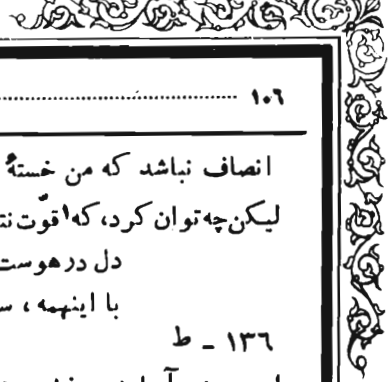 ۱۰۶
انصاف نباشد که من خستهٔ
لیکن چه توان کرد، که۱ قوّت نتـ
دل در هوست
با اینهمه ، سـ
۱۳۶ ـ ط